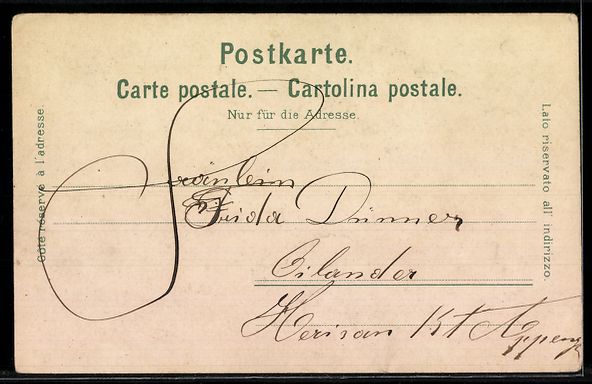 Postkarte.
Carte postale. — Cartolina postale.
Nur für die Adresse.
Côté réservé à l'adresse.
Lato riservato all' indirizzo.
Fräulein
Frida Dünner
Oilander
Herisau Kt Appenz